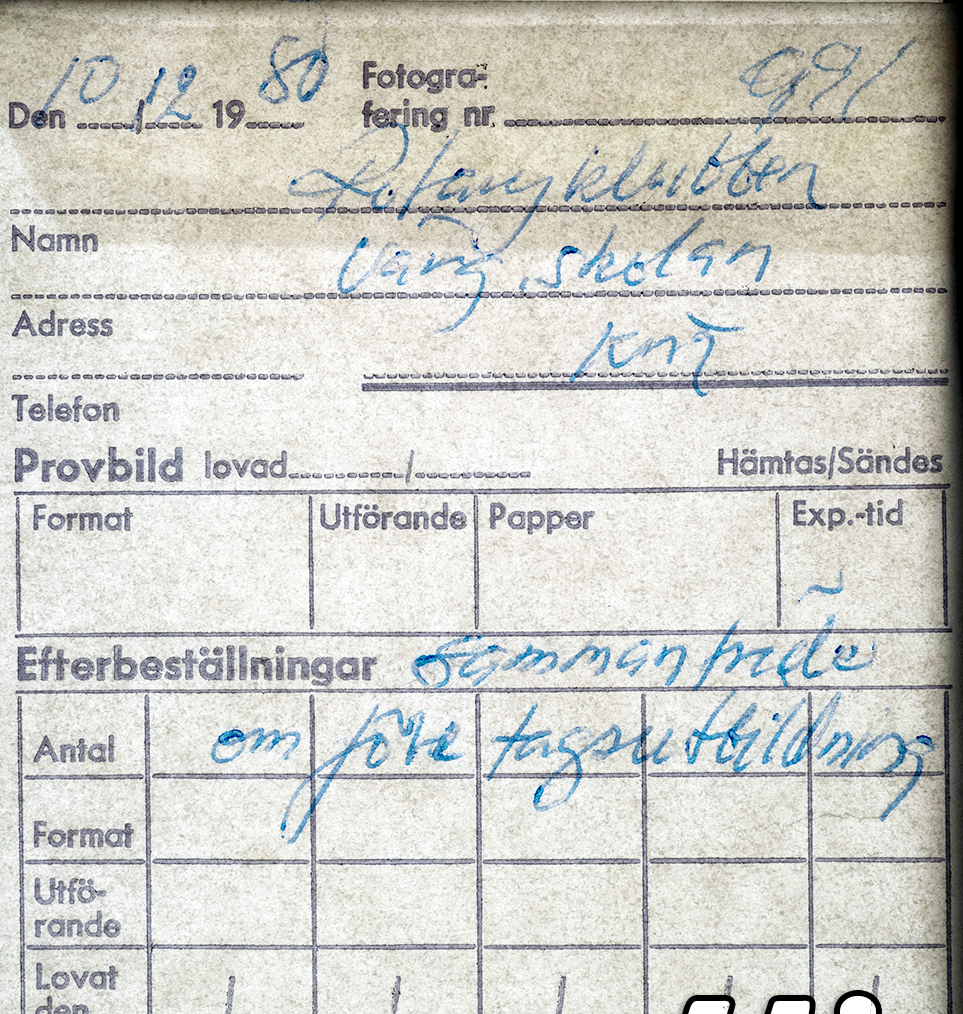 Den 10/12 1980 Fotogra-
fering nr. 991
Rotaryklubben
Namn
Väng.skolan
Adress
Kna
Telefon
Provbild lovad / Hämtas/Sändes
Format Utförande Papper Exp.-tid
Efterbeställningar Sammanträde
Antal om företagsutbildning
Format
Utfö-
rande
Lovat
den / / / / /